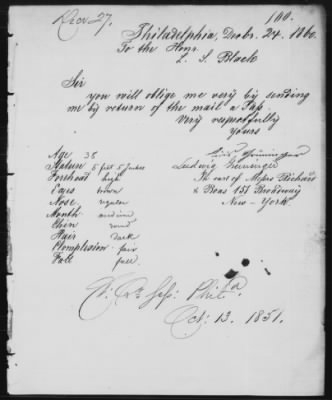 Dec 27.
100.
Philadelphia, Decbr. 24. 1860.
To the Honr.
L. S. Black
Sir
you will oblige me very by sending
me by return of the mail a Pass.
Very respectfully
Yours
Ludwig
In care of Messrs Richard
& Boas 151 Broadway
New-York
Age 38
Stature 5 feet 5 Inches
Forehead high
Eyes brown
Nose regular
Mouth medium
Chin round
Hair dark
Complexion fair
Face full
Phila
Oct. 13. 1851.